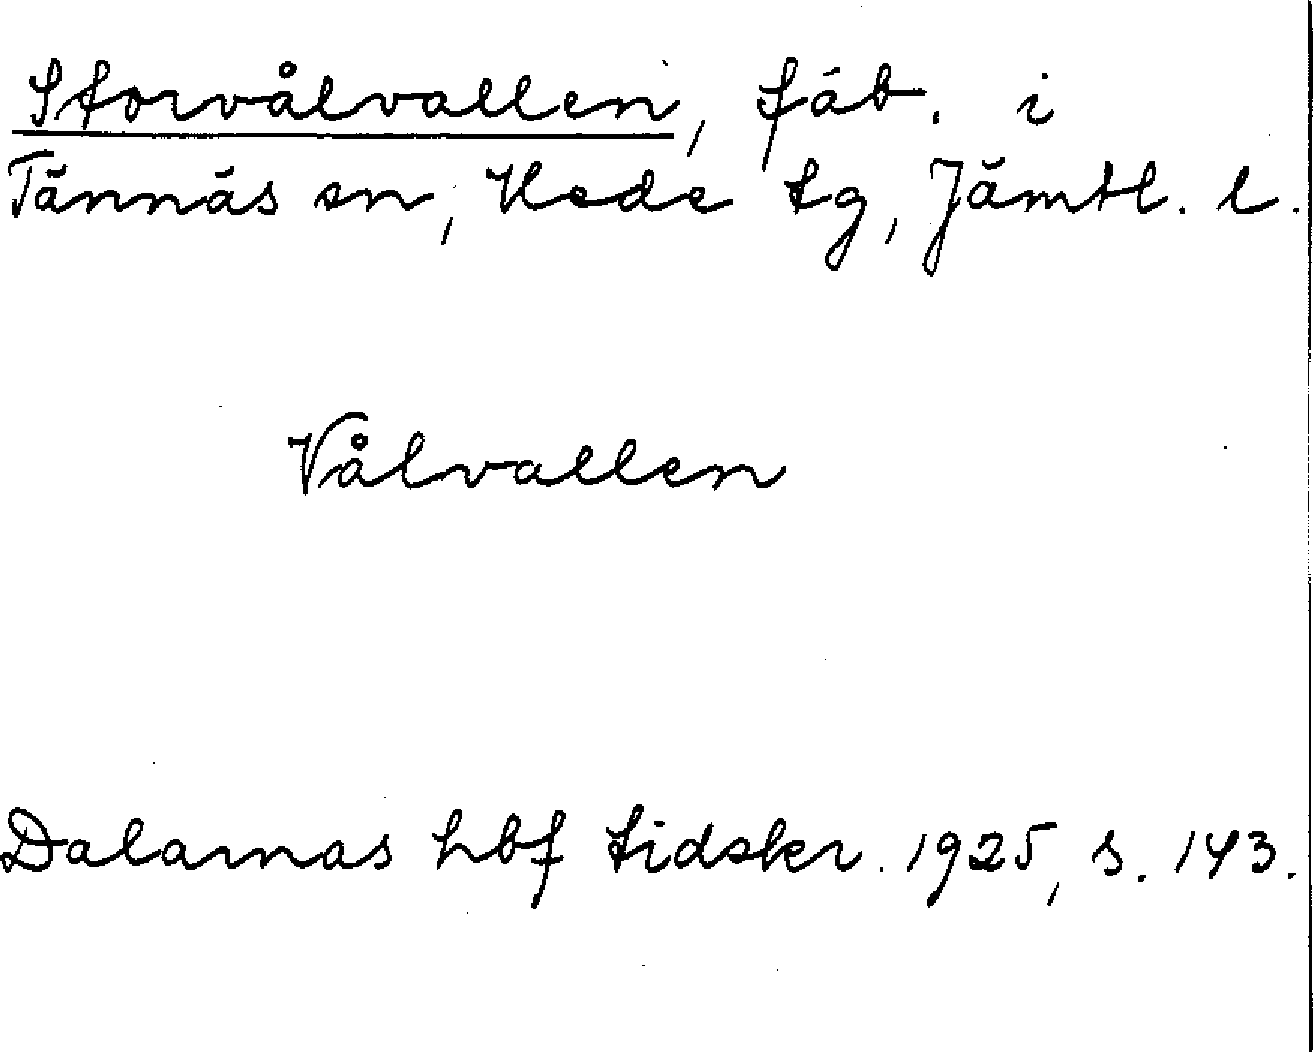 Storvålvallen, fäb. i
Tännäs sn, Hede tg, Jämtl. l.
Vålvallen
Dalarnas hbf tidskr. 1925, s. 143.